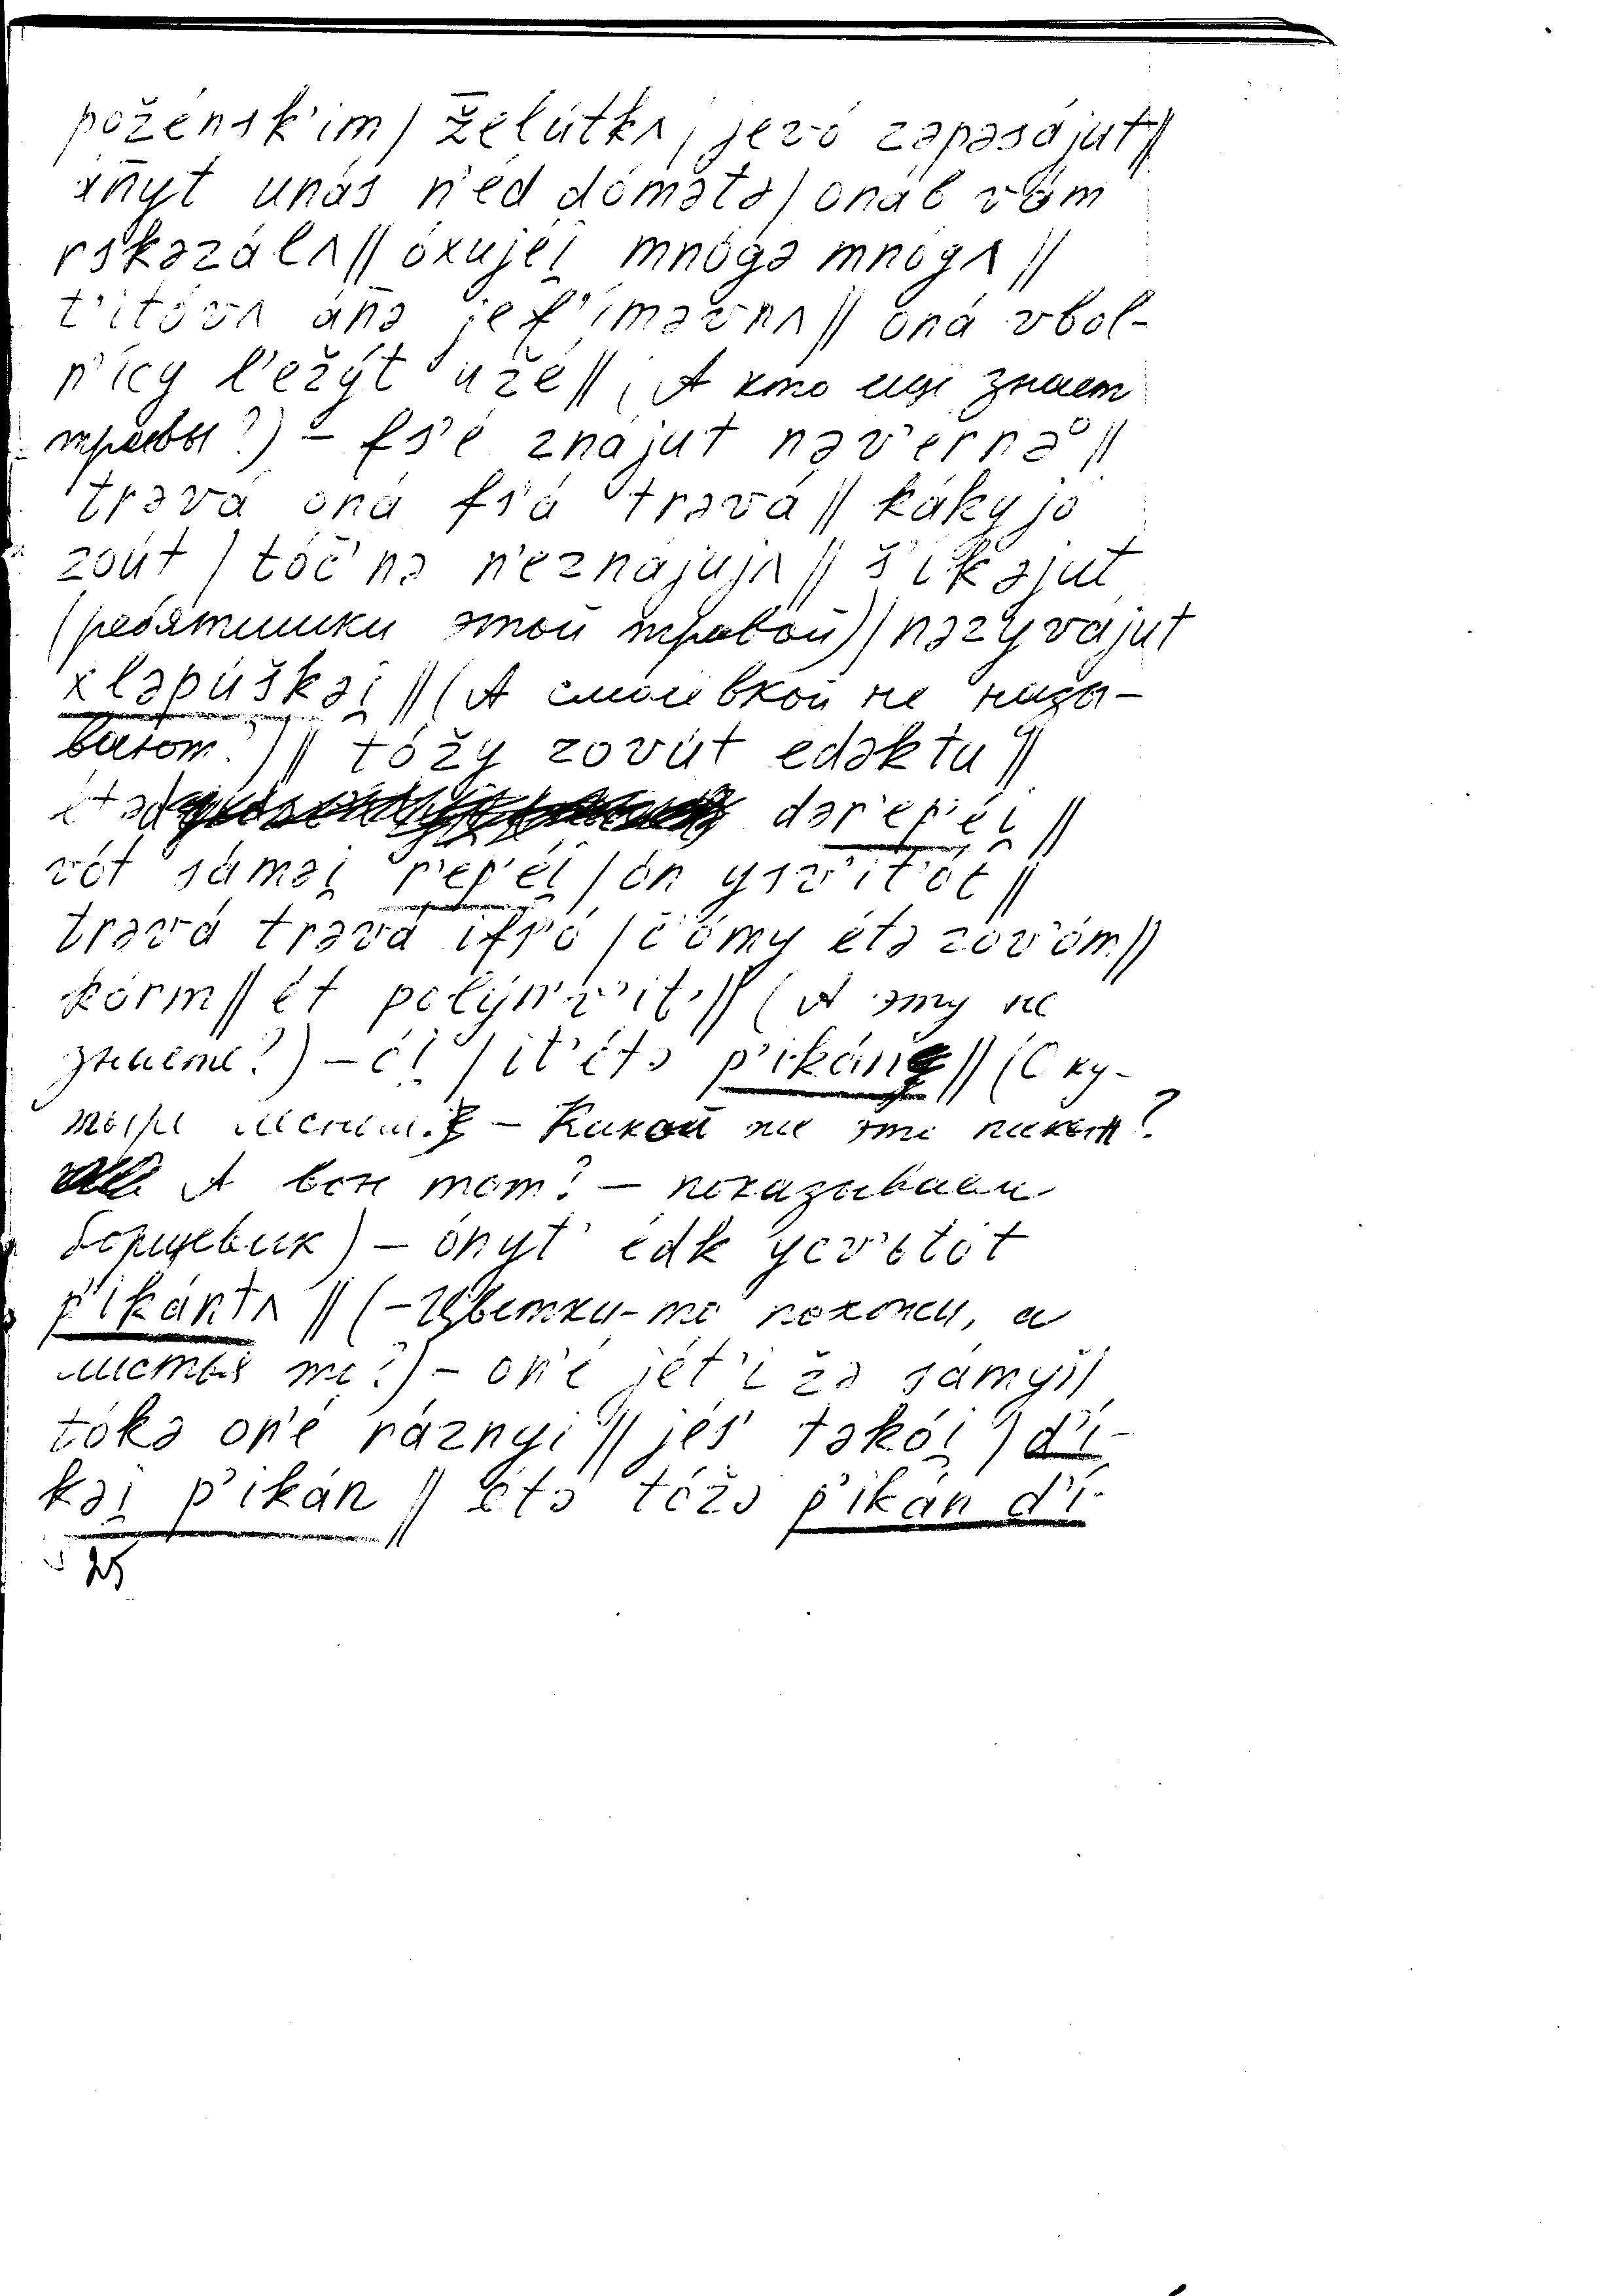 požénsk'im / želútkʌ, jevó zəpəsájut //
áñyt unás n'ed dómətə / onáb vám
rskəzálʌ // óxujei̯ mnógə mnógʌ //
t'itóvʌ áñə jef'íməvnʌ // oná vbol-
n'ícy l'ežýt užé // (А кто еще знает
травы?) – fs'é znájut nav'érnə //
trəvá oná fs'á trəvá // káky jo
zoút / tóč'nə n'eznájujʌ // š'íkəjut
(ребятишки этой травой) / nəzyvájut
xləpúškəi̯ // (А смолёвкой не назы-
вают?) // tóžy zovút edəktu //
étəd dər'ep'éi̯ //
vót sáməi̯ r'ep'éi̯ / ón ysv'it'ót //
trəvá trəvá ifs'ó / č'ómy étə zov'óm //
kórm // ét polýn'v'it' // (А эту не
знаете?) – é! / it'étə p'ikány // (С ку-
тыре – Какой же это пикан?
А вон тот? – показываем
борщевик) – ónyt' édk ycv'ótót
p'ikántʌ // (– Цветки-то похожи, а
листья то?) – on'é jét'i žə sámyi /
tókə on'é ráznyi // jés' təkói̯ / d'í-
kəi̯ p'ikán // étə tóžə p'ikán d'í-
25